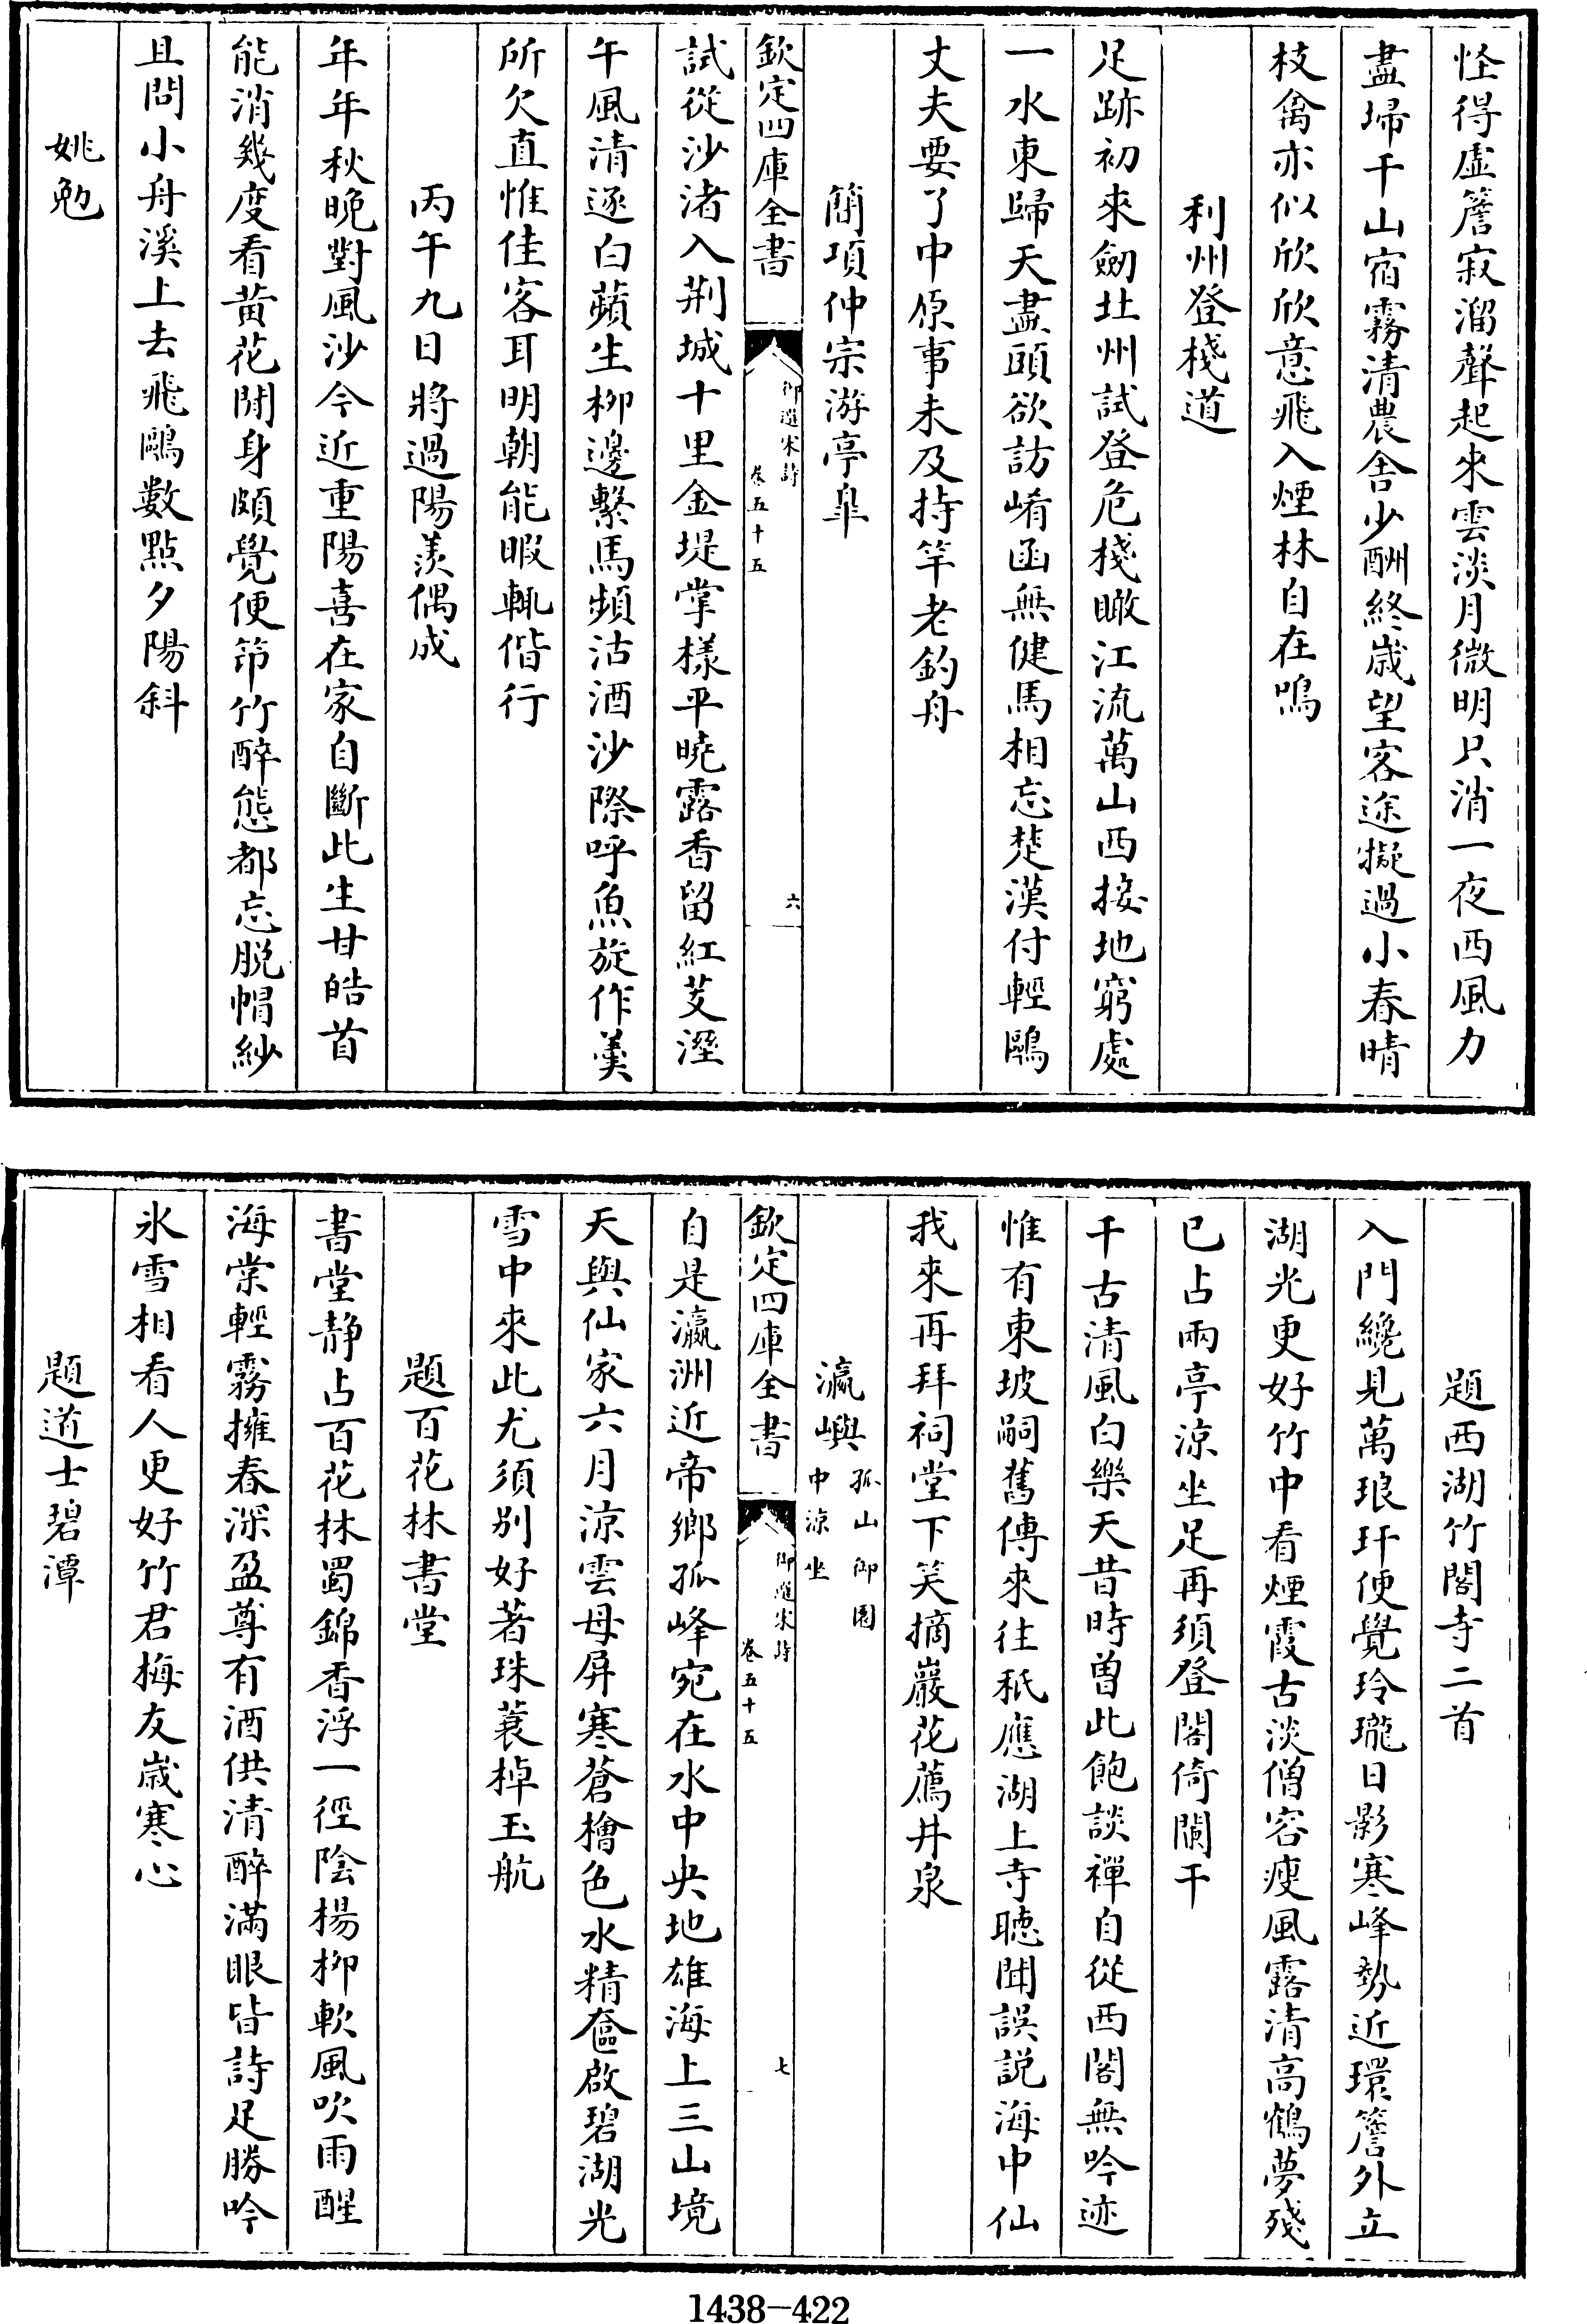 怪得虚簷寂溜聲起來雲淡月微明只消一夜西風力
盡埽千山宿霧清農舍少酬終歲望客途擬過小春晴
枝禽亦似欣欣意飛入煙林自在鳴
利州登棧道
足跡初來劒北州試登危棧瞰江流萬山西接地窮處
一水東歸天盡頭欲訪崤函無健馬相忘楚漢付輕鷗
丈夫要了中原事未及持竿老釣舟
簡項仲宗游亭臯
欽定四庫全書
御選宋詩
卷五十五
六
試從沙渚入荆城十里金堤掌樣平曉露香留紅芰溼
午風清逐白蘋生柳邊繫馬頻沽酒沙際呼魚旋作羹
所欠直惟佳客耳明朝能暇輒偕行
丙午九日將過陽羨偶成
年年秋晚對風沙今近重陽喜在家自斷此生甘皓首
能消幾度看黄花閒身頗覺便笻竹醉態都忘脱帽紗
且問小舟溪上去飛鷗數點夕陽斜
姚勉
題西湖竹閣寺二首
入門纔見萬琅玕便覺玲瓏日影寒峰勢近環簷外立
湖光更好竹中看煙霞古淡僧容瘦風露清高鶴夢殘
已占兩亭涼坐足再須登閣倚闌干
千古清風白樂天昔時曾此飽談禪自從西閣無吟迹
惟有東坡嗣舊傳來往秖應湖上寺聽聞誤説海中仙
我來再拜祠堂下笑摘巖花薦井泉
瀛嶼
孤山御園
中涼坐
欽定四庫全書
御選宋詩
卷五十五
七
自是瀛洲近帝鄉孤峰宛在水中央地雄海上三山境
天與仙家六月涼雲母屏寒蒼檜色水精奩啟碧湖光
雪中來此尤須别好著珠蓑棹玉航
題百花林書堂
書堂静占百花林蜀錦香浮一徑陰楊柳軟風吹雨醒
海棠輕霧擁春深盈尊有酒供清醉滿眼皆詩足勝吟
氷雪相看人更好竹君梅友歲寒心
題道士碧潭
1438-422